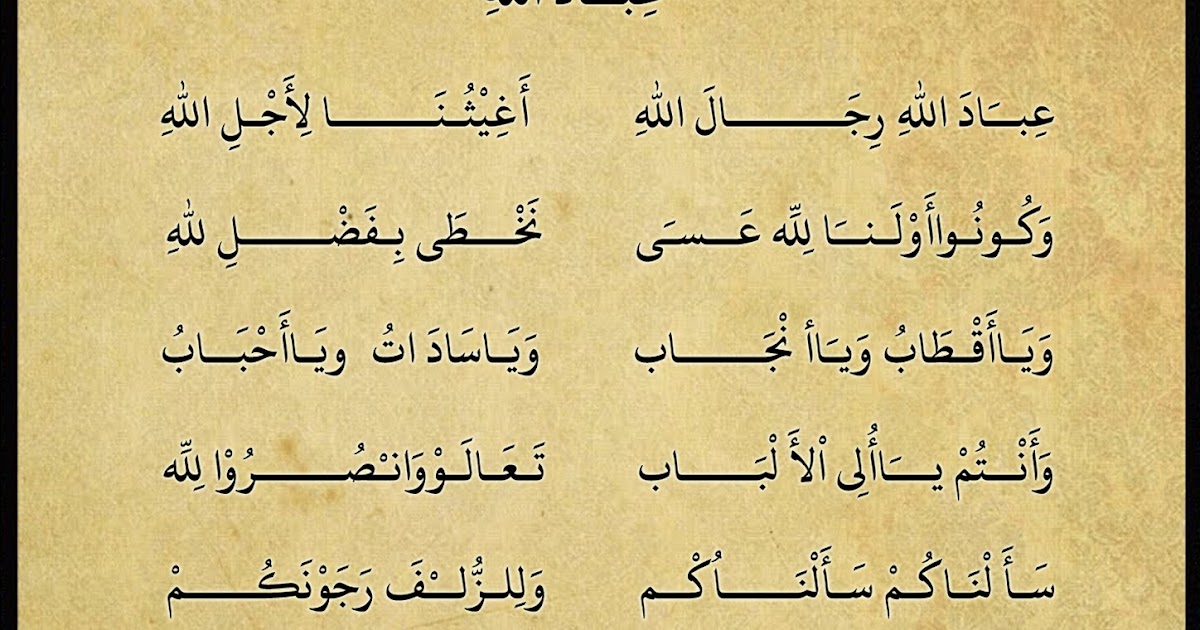 عِبَادَ اللهِ
عِبَادَ اللهِ رِجَالَ اللهِ أَغِيْثُنَا لِأَجْلِ اللهِ
وَكُونُواأَوْلَنَا لِلّٰه عَسىَ نَخْطَى بِفَضْلِ للهِ
وَيَاأَقْطَابُ وَيَاأ نْجَاب وَيَاسَادَ اتُ ويَاأَحْبَابُ
وَأَنْتُمْ يَاأُلِى اْلأَ لْبَاب تَعَالَوْوَانْصُرُوْا لِلّٰه
سَأَ لْنَاكُمْ سَأَلْنَاُكْم وَلِلزُّلْفَ رَجَوْنَكُمْ